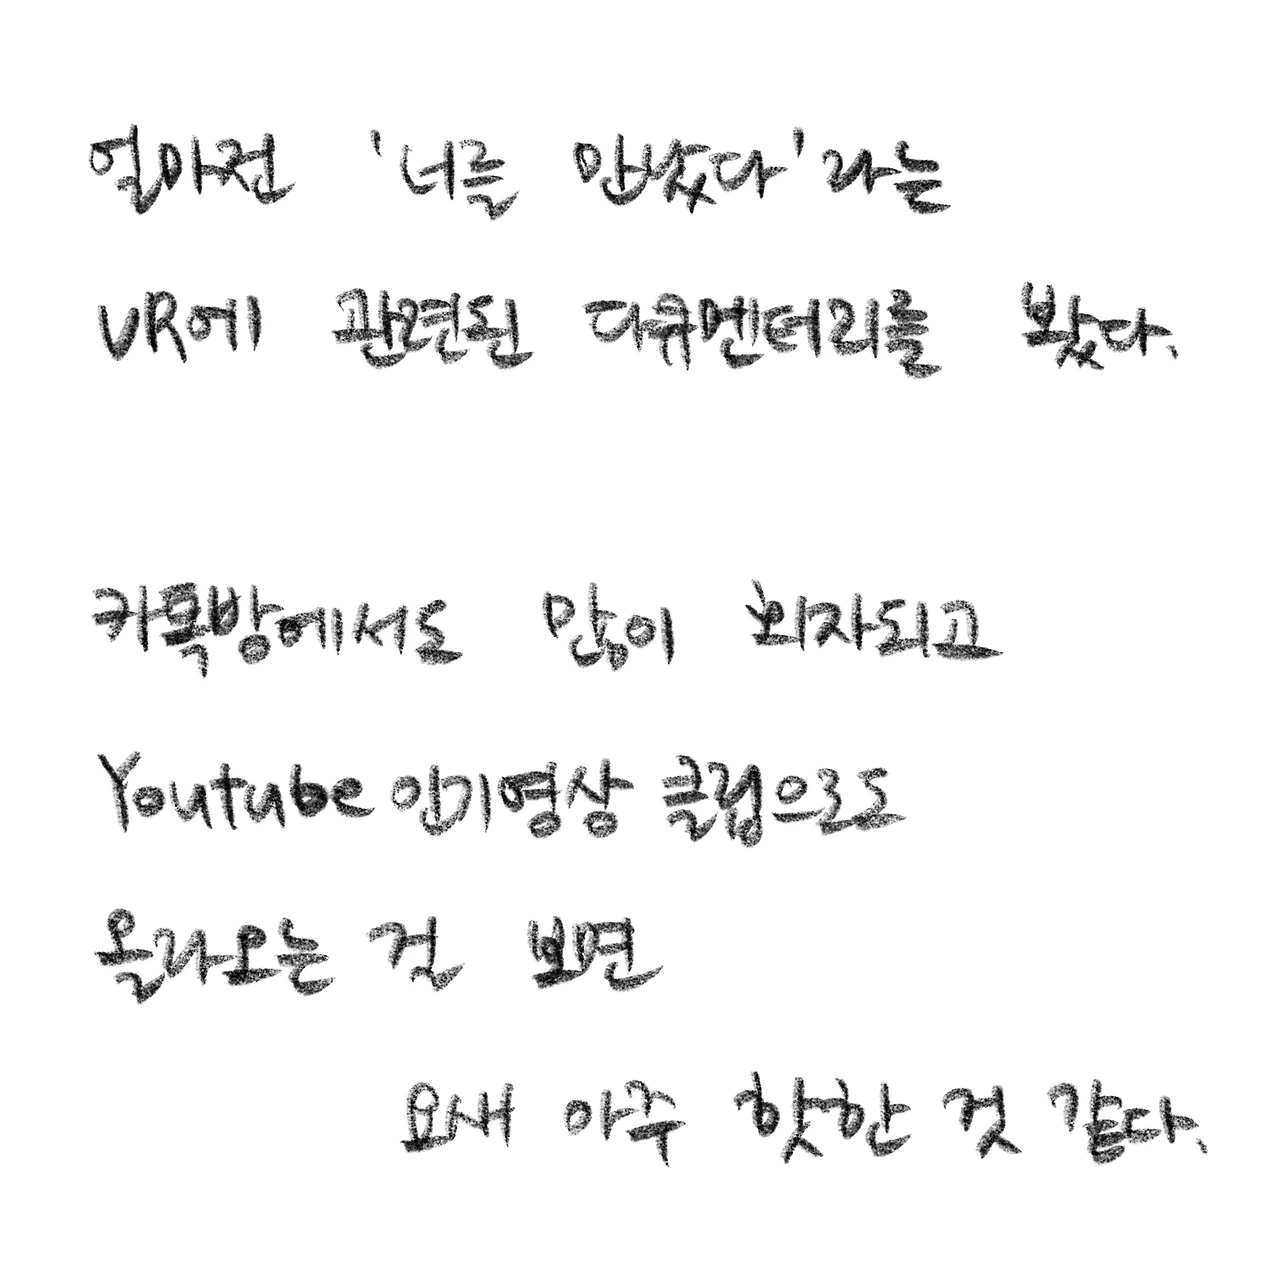 얼마전 '너를 만났다'라는
VR에 관련된 다큐멘터리를 봤다.
카톡방에서도 많이 회자되고
Youtube 인기영상 클립으로도
올라오는 걸 보면
요새 아주 핫한 것 같다.